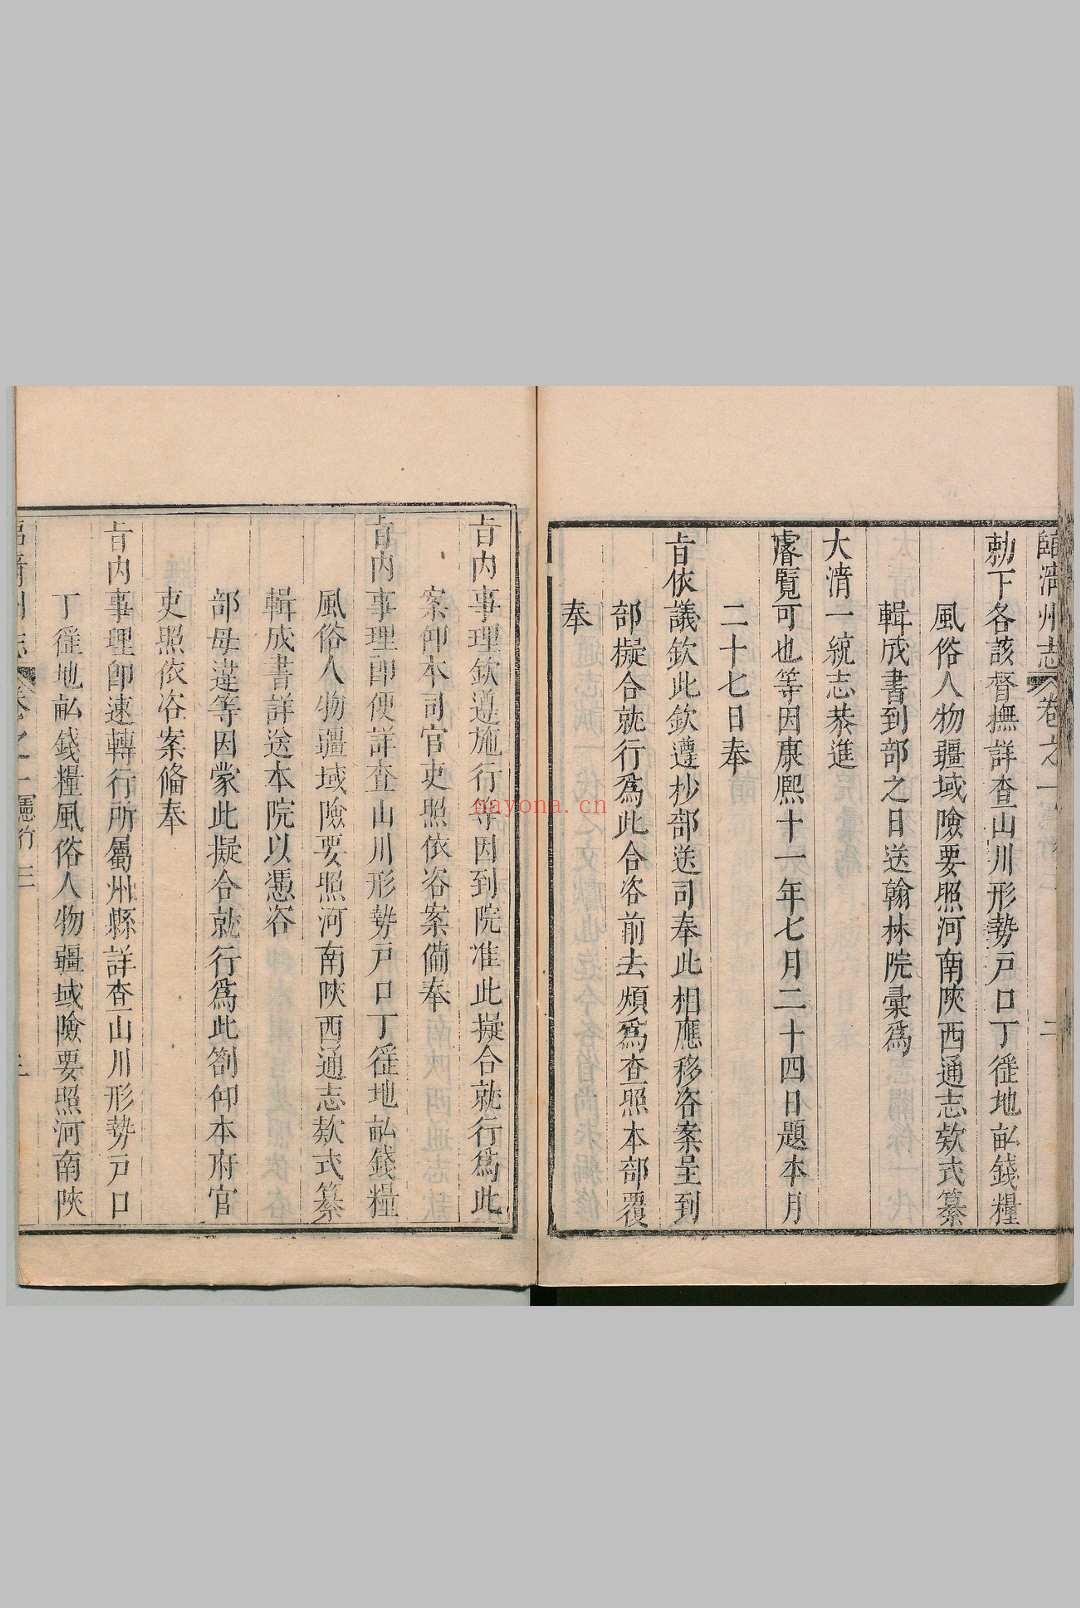 臨淸州志 卷之一 二
勅下各該督撫詳查山川形勢戶口丁徭地畝錢糧
風俗人物疆域險要照河南陝西通志欵式纂
輯成書到部之日送翰林院彙爲
大淸一統志恭進
睿覽可也等因康熙十一年七月二十四日題本月
二十七日奉
旨依議欽此欽遵抄部送司奉此相應移咨案呈到
部擬合就行爲此合咨前去煩爲查照本部覆
奉
旨內事理欽遵施行等因到院准此擬合就行爲此
案仰本司官吏照依咨案備奉
旨內事理卽便詳查山川形勢戶口丁徭地畝錢糧
風俗人物疆域險要照河南陝西通志欵式纂
輯成書詳送本院以憑咨
部毋違等因蒙此擬合就行爲此劄仰本府官
吏照依咨案備奉
旨內事理卽速轉行所屬州縣詳查山川形勢戶口
丁徭地畝錢糧風俗人物疆域險要照河南陝
州志 卷之一 三
nayona.cn